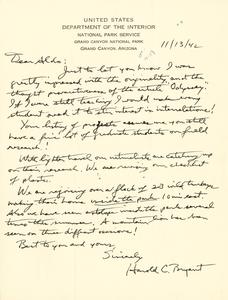 UNITED STATES
DEPARTMENT OF THE INTERIOR
NATIONAL PARK SERVICE
GRAND CANYON NATIONAL PARK
GRAND CANYON, ARIZONA
11/13/42
Dear Aldo:
Just to let you know I was
greatly impressed with the originality and the
thought provocativeness of the article Odyssey.
If I were still teaching I would make every
student need it to stem in orientations!
Your listing of issues you still
have a fair lot of graduate students on field
research!
With light travel our naturalists are catching up
on their research. We are revising our checklist
of plants.
We are enjoying a flock of wild turkeys
making their home inside the park
Also we have seen antelope inside the park several
times this summer. A mountain lion has been
seen on three different occasions!
Best to you and yours,
Sincerely
Harold C. Bryant